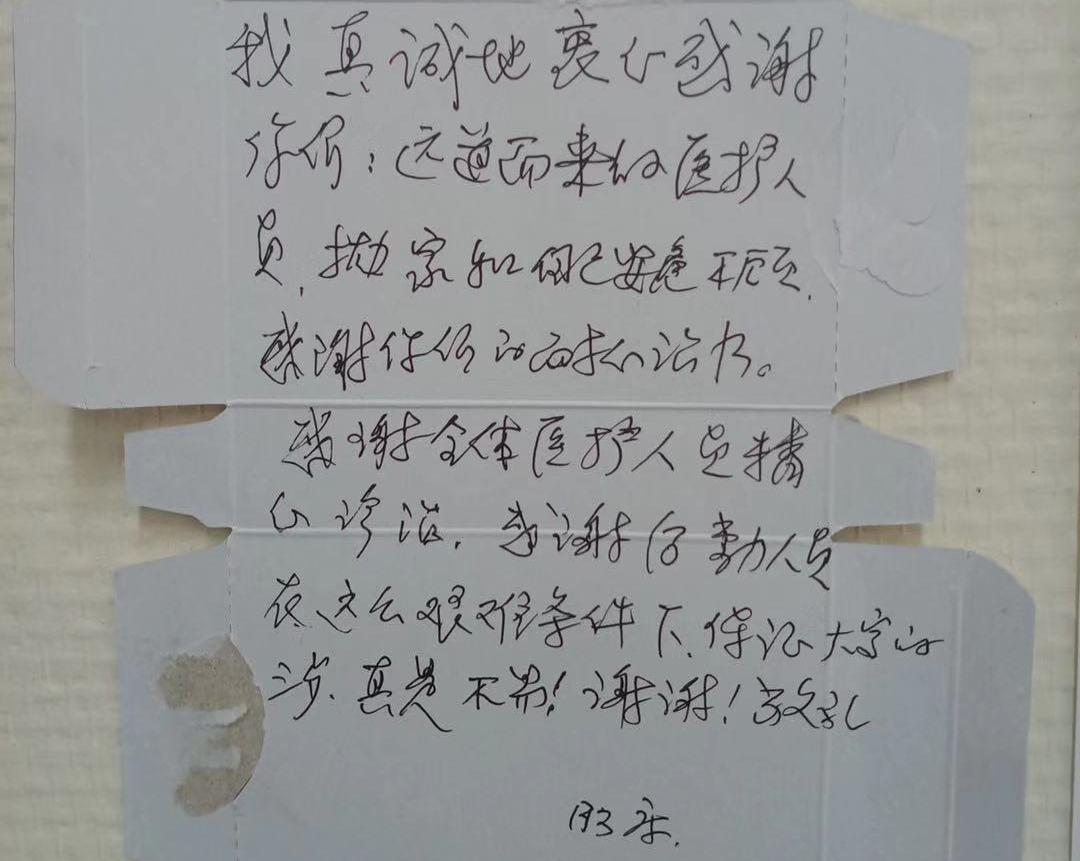 我真诚地衷心感谢
你们：远道而来的医护人
员，抛家和自己安危不顾，
感谢你们的对我们治疗。
感谢全体医护人员精
心诊治，感谢后勤人员
在这么艰难条件下，保证大家的
三岁，真是不易！谢谢！敬礼